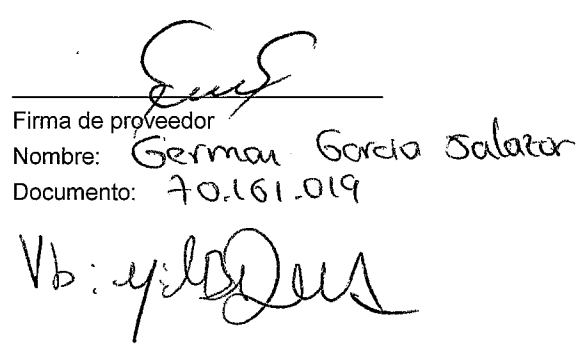 Firma de proveedor
Nombre: German Garcia Salazar
Documento: 70.161.019
Vb: